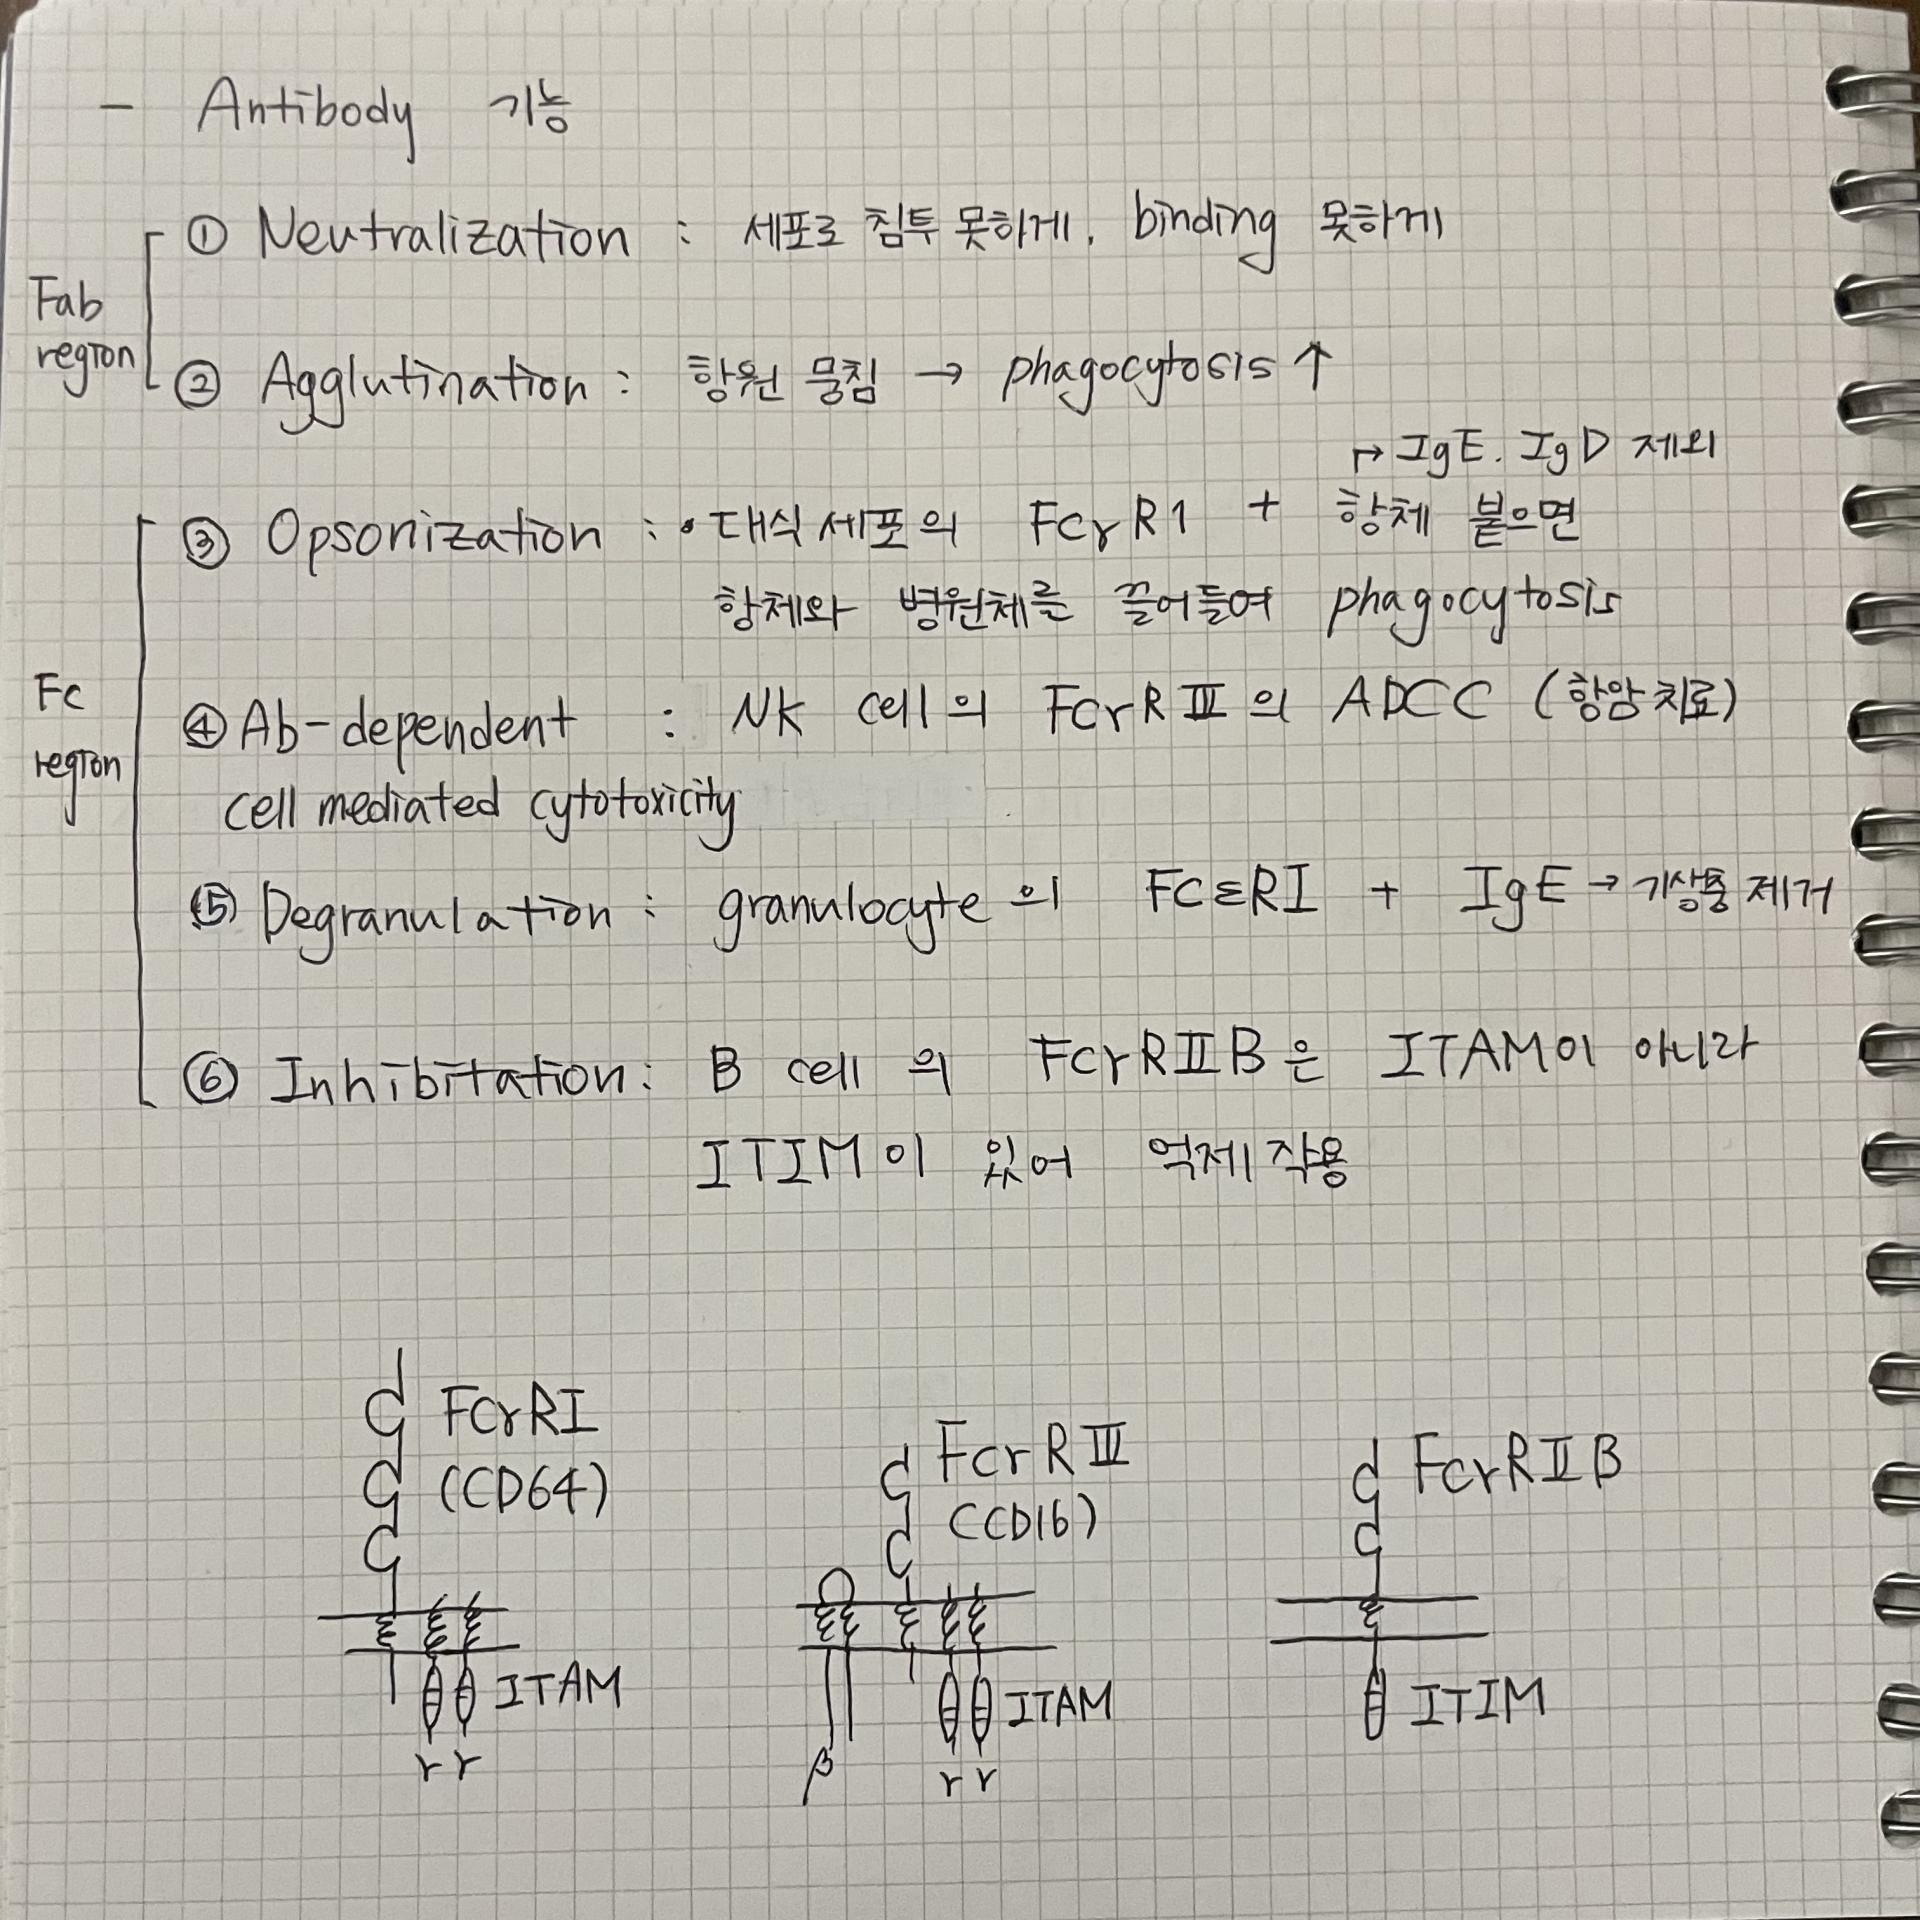 - Antibody 기능
Fab region
① Neutralization : 세포로 침투 못하게. binding 못하게
② Agglutination : 항원 뭉침 → phagocytosis ↑
↱ IgE. IgD 제외
Fc region
③ Opsonization : • 대식세포의 FcγR1 + 항체 붙으면
항체와 병원체를 끌어들여 phagocytosis
④ Ab-dependent : NK cell의 FcγRⅢ의 ADCC (항암치료)
cell mediated cytotoxicity
⑤ Degranulation : granulocyte의 FcεRI + IgE → 기생충 제거
⑥ Inhibitation : B cell의 FcγRⅡB은 ITAM이 아니라
ITIM이 있어 억제작용
FcγRI
(CD64)
ITAM
γ γ
FcγRⅢ
(CD16)
ITAM
β
γ γ
FcγRⅡB
ITIM